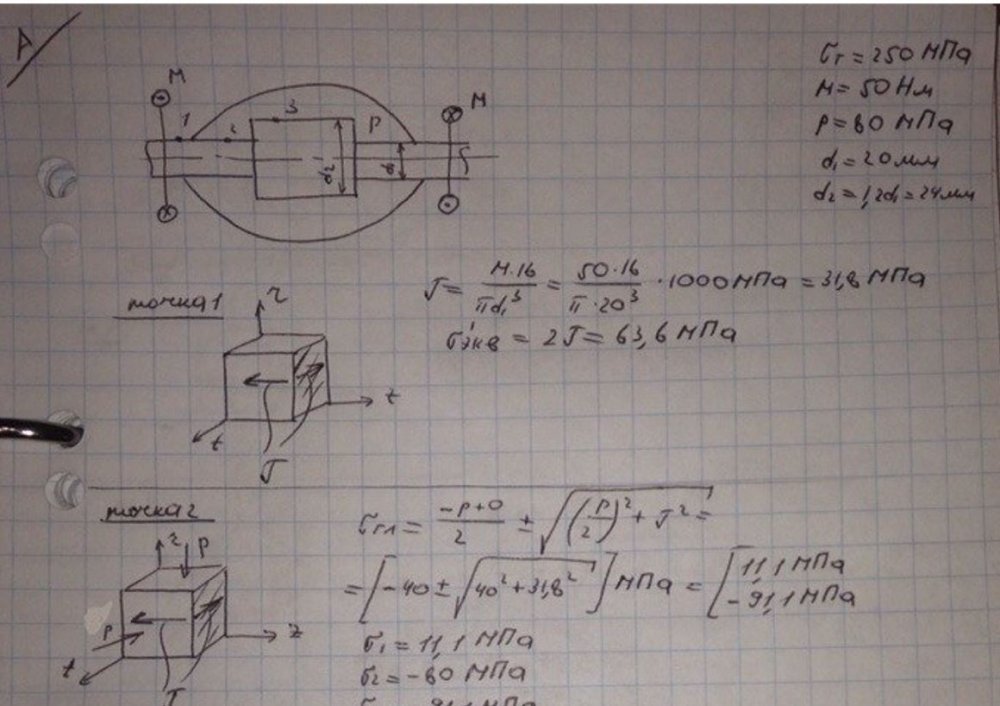 A/
M
M
1 2 3 P d₂ d₁
σт = 250 МПа
M = 50 Нм
P = 80 МПа
d₁ = 20 мм
d₂ = 1,2d₁ = 24 мм
точка 1
r
z
t
τ
τ = M·16/πd₁³ = 50·16/π·20³ · 1000 МПа = 31,8 МПа
σэкв = 2τ = 63,6 МПа
точка 2
r
P
P
z
t
τ
σгл = (-P+0)/2 ± √((P/2)² + τ²) =
= [-40 ± √(40² + 31,8²)] МПа = [11,1 МПа
-91,1 МПа
σ₁ = 11,1 МПа
σ₂ = -80 МПа